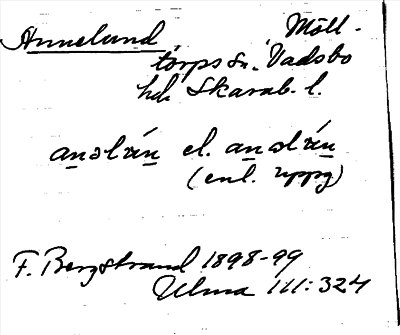 Annelund Möll-
torps sn. Vadsbo
hd. Skarab. l.
anəlún el. anəlún
(enl. uppg)
F. Bergstrand 1898-99
Ulma 111:324